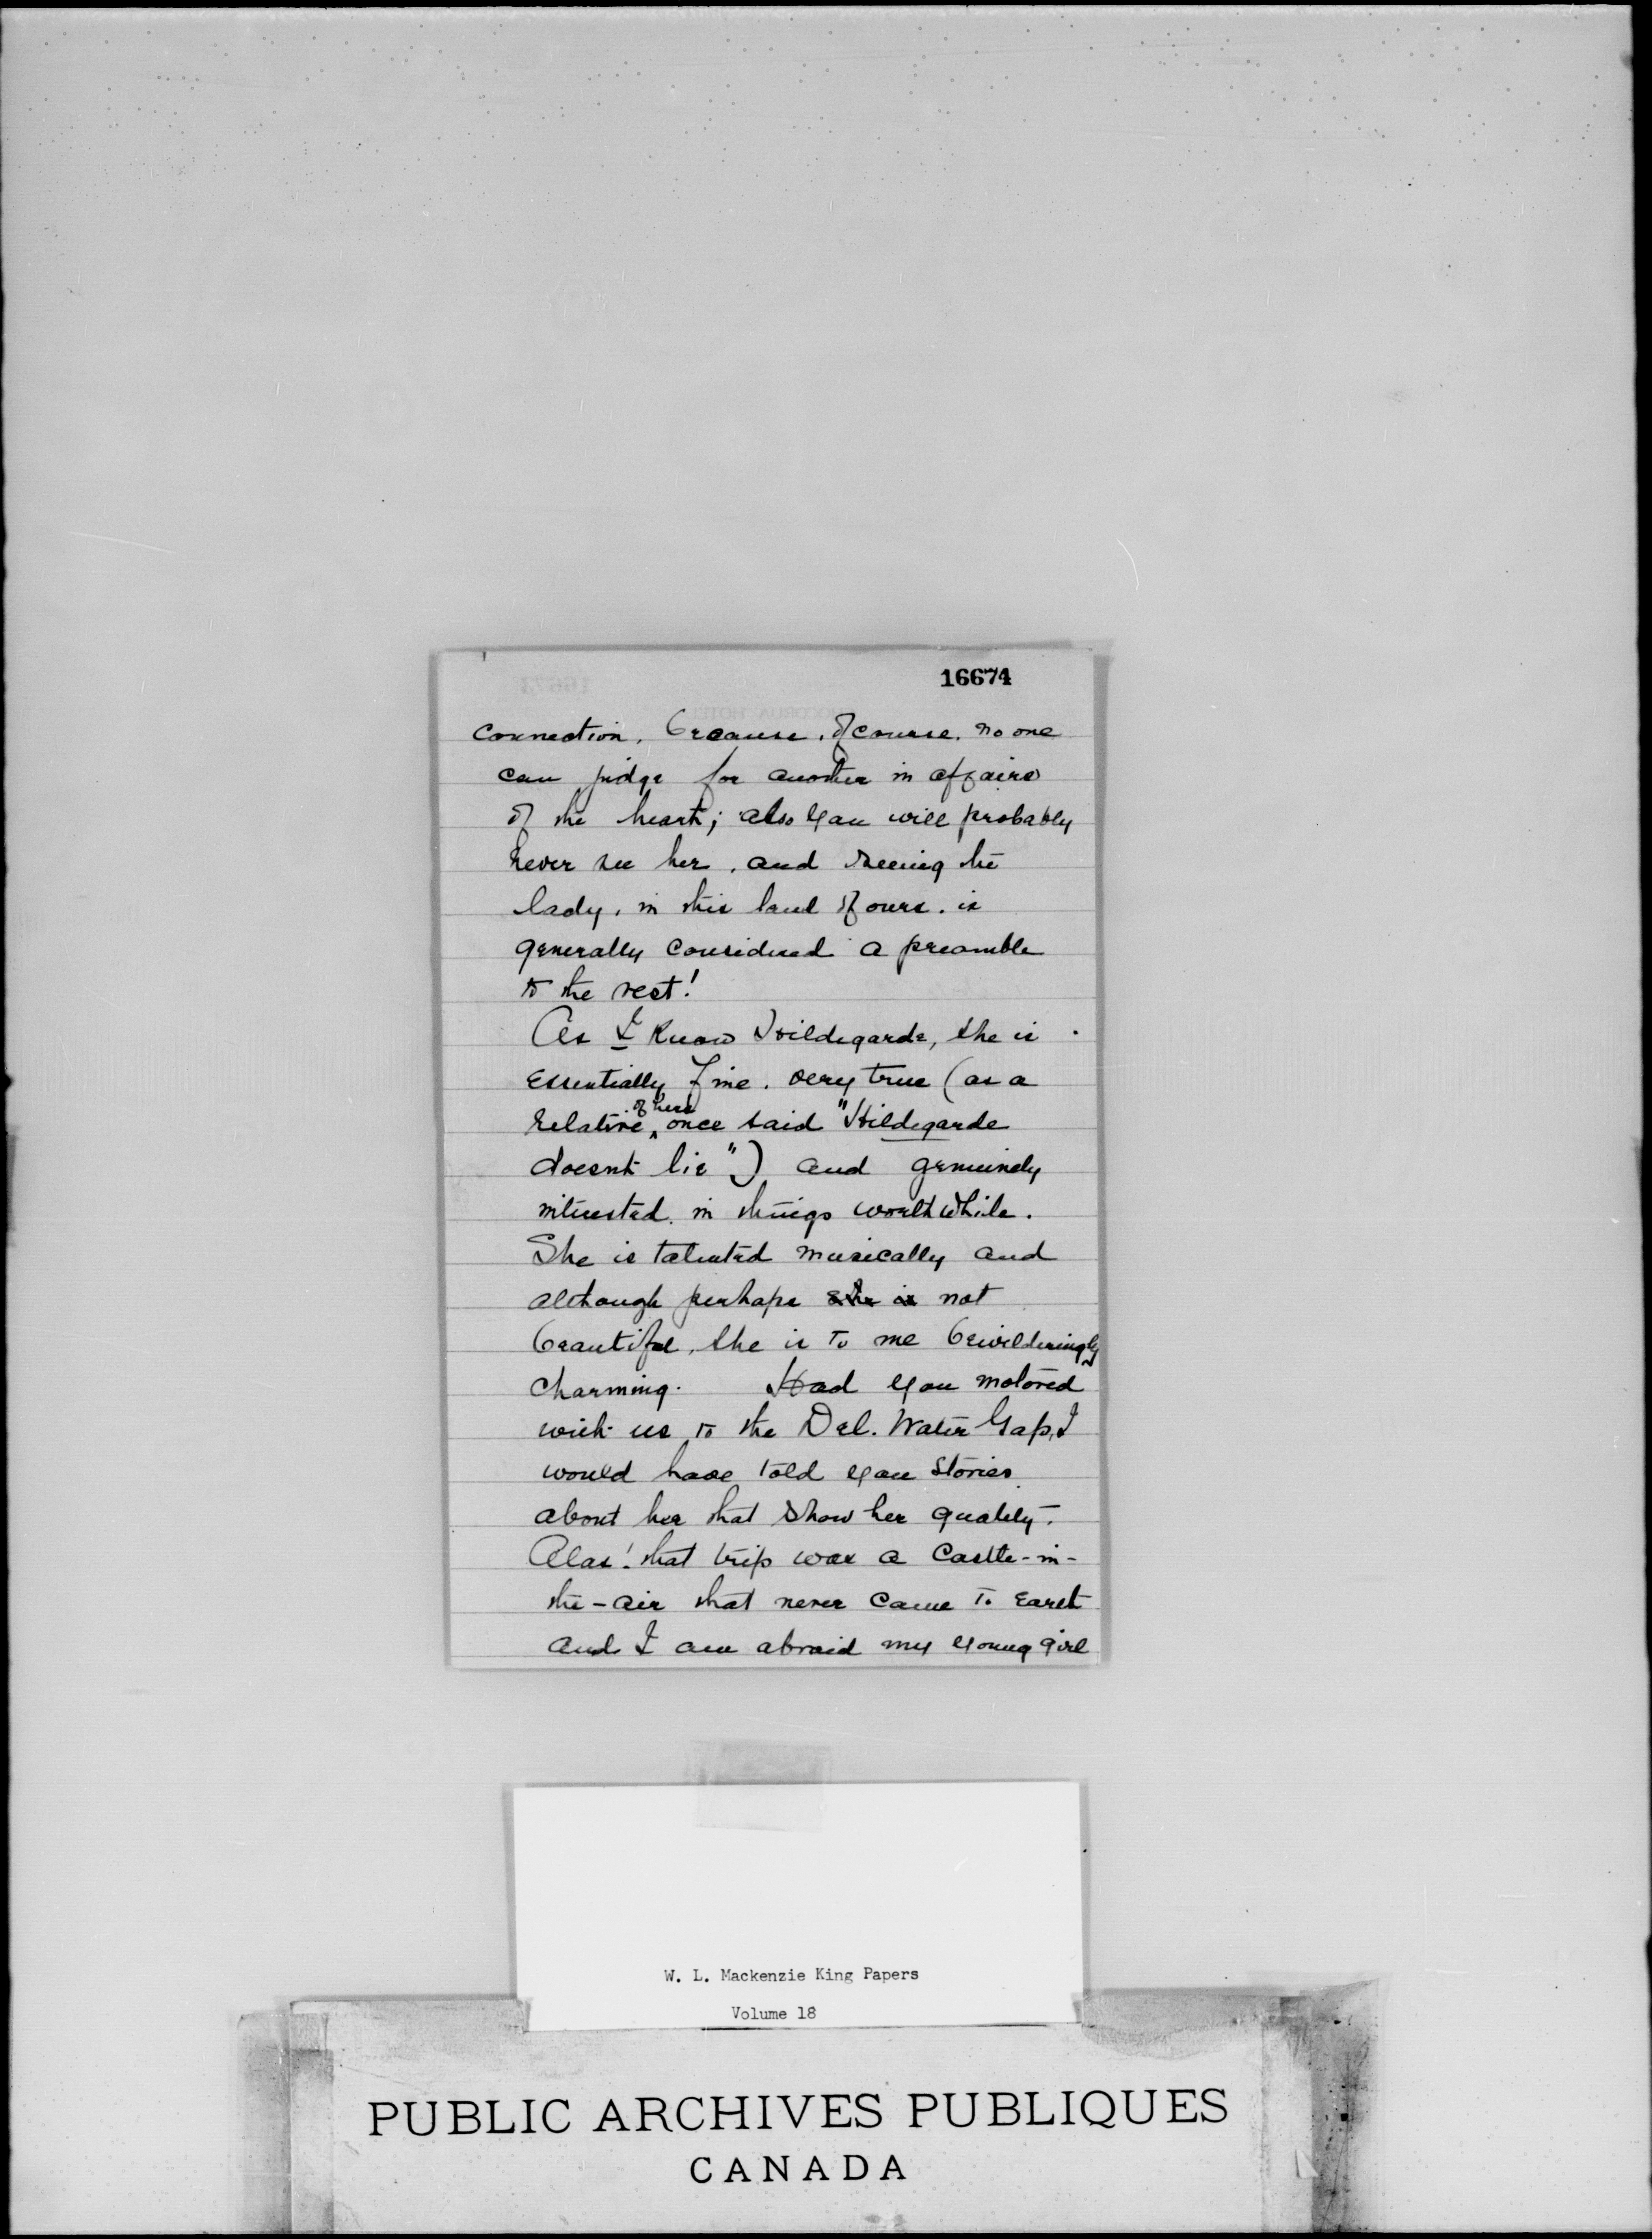 16674
connection, because, of course, no one
can judge for another in affairs
of the heart; also you will probably
never see her, and seeing the
lady, in this land of ours, is
generally considered a preamble
to the rest!
As I know Hildegarde, she is
essentially fine, very true (as a
relative of hers once said "Hildegarde
doesn't lie") and genuinely
interested in things worth while.
She is talented musically and
although perhaps she is not
beautiful, she is to me bewilderingly
charming. Had you motored
with us to the Del. Water Gap, I
would have told you stories
about her that show her quality.
Alas! that trip was a castle-in-
the-air that never came to earth
and I am afraid my young girl
W. L. Mackenzie King Papers
Volume 18
PUBLIC ARCHIVES PUBLIQUES
CANADA